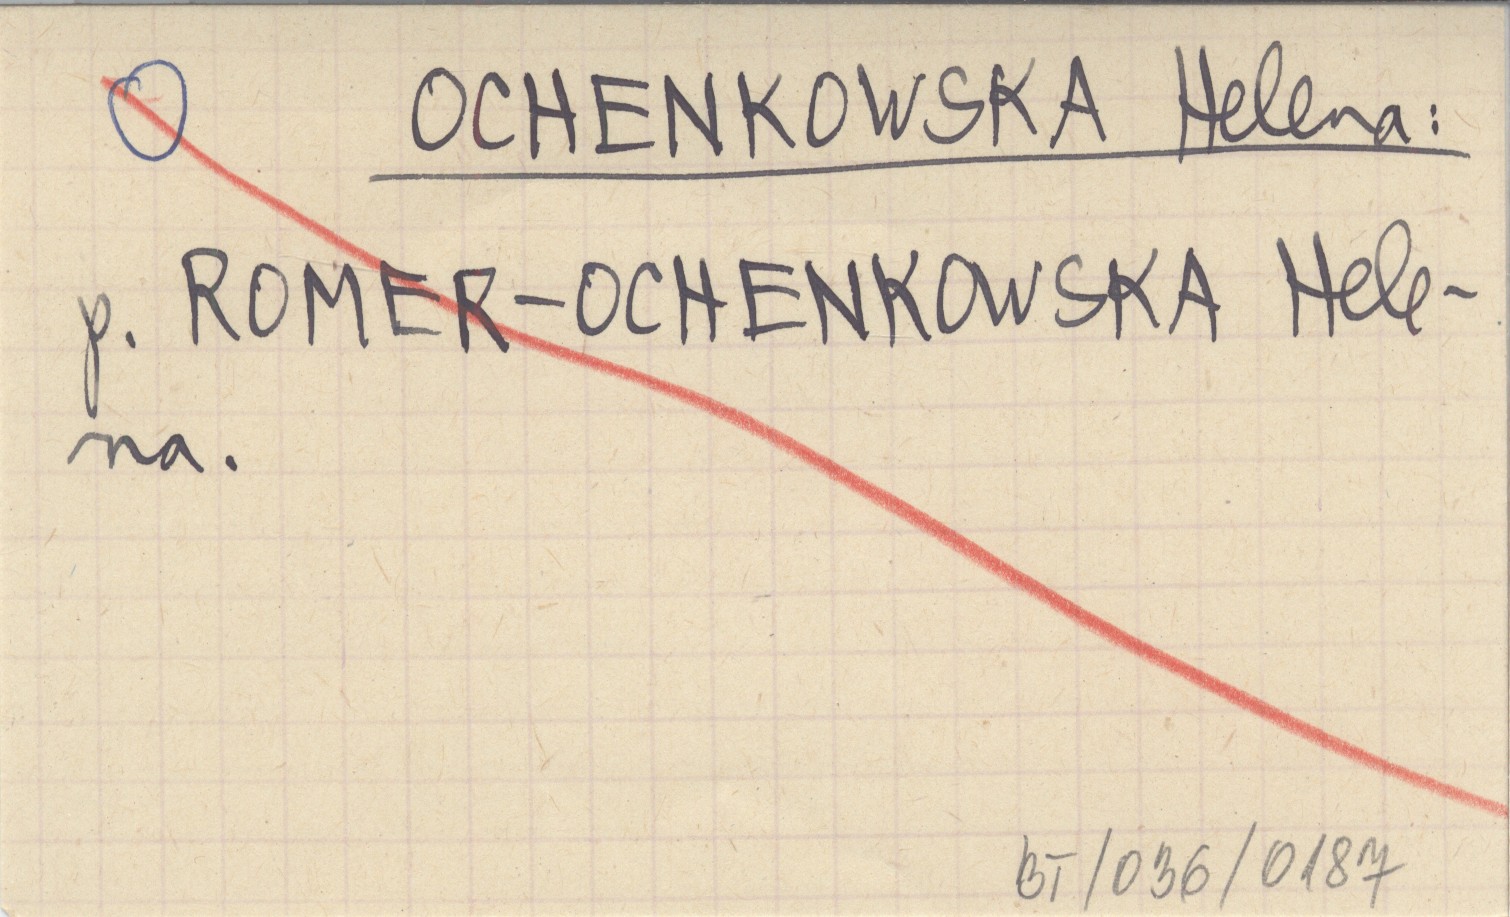 OCHENKOWSKA Helena:
p. ROMER-OCHENKOWSKA Hele-
na.
BT/036/0187